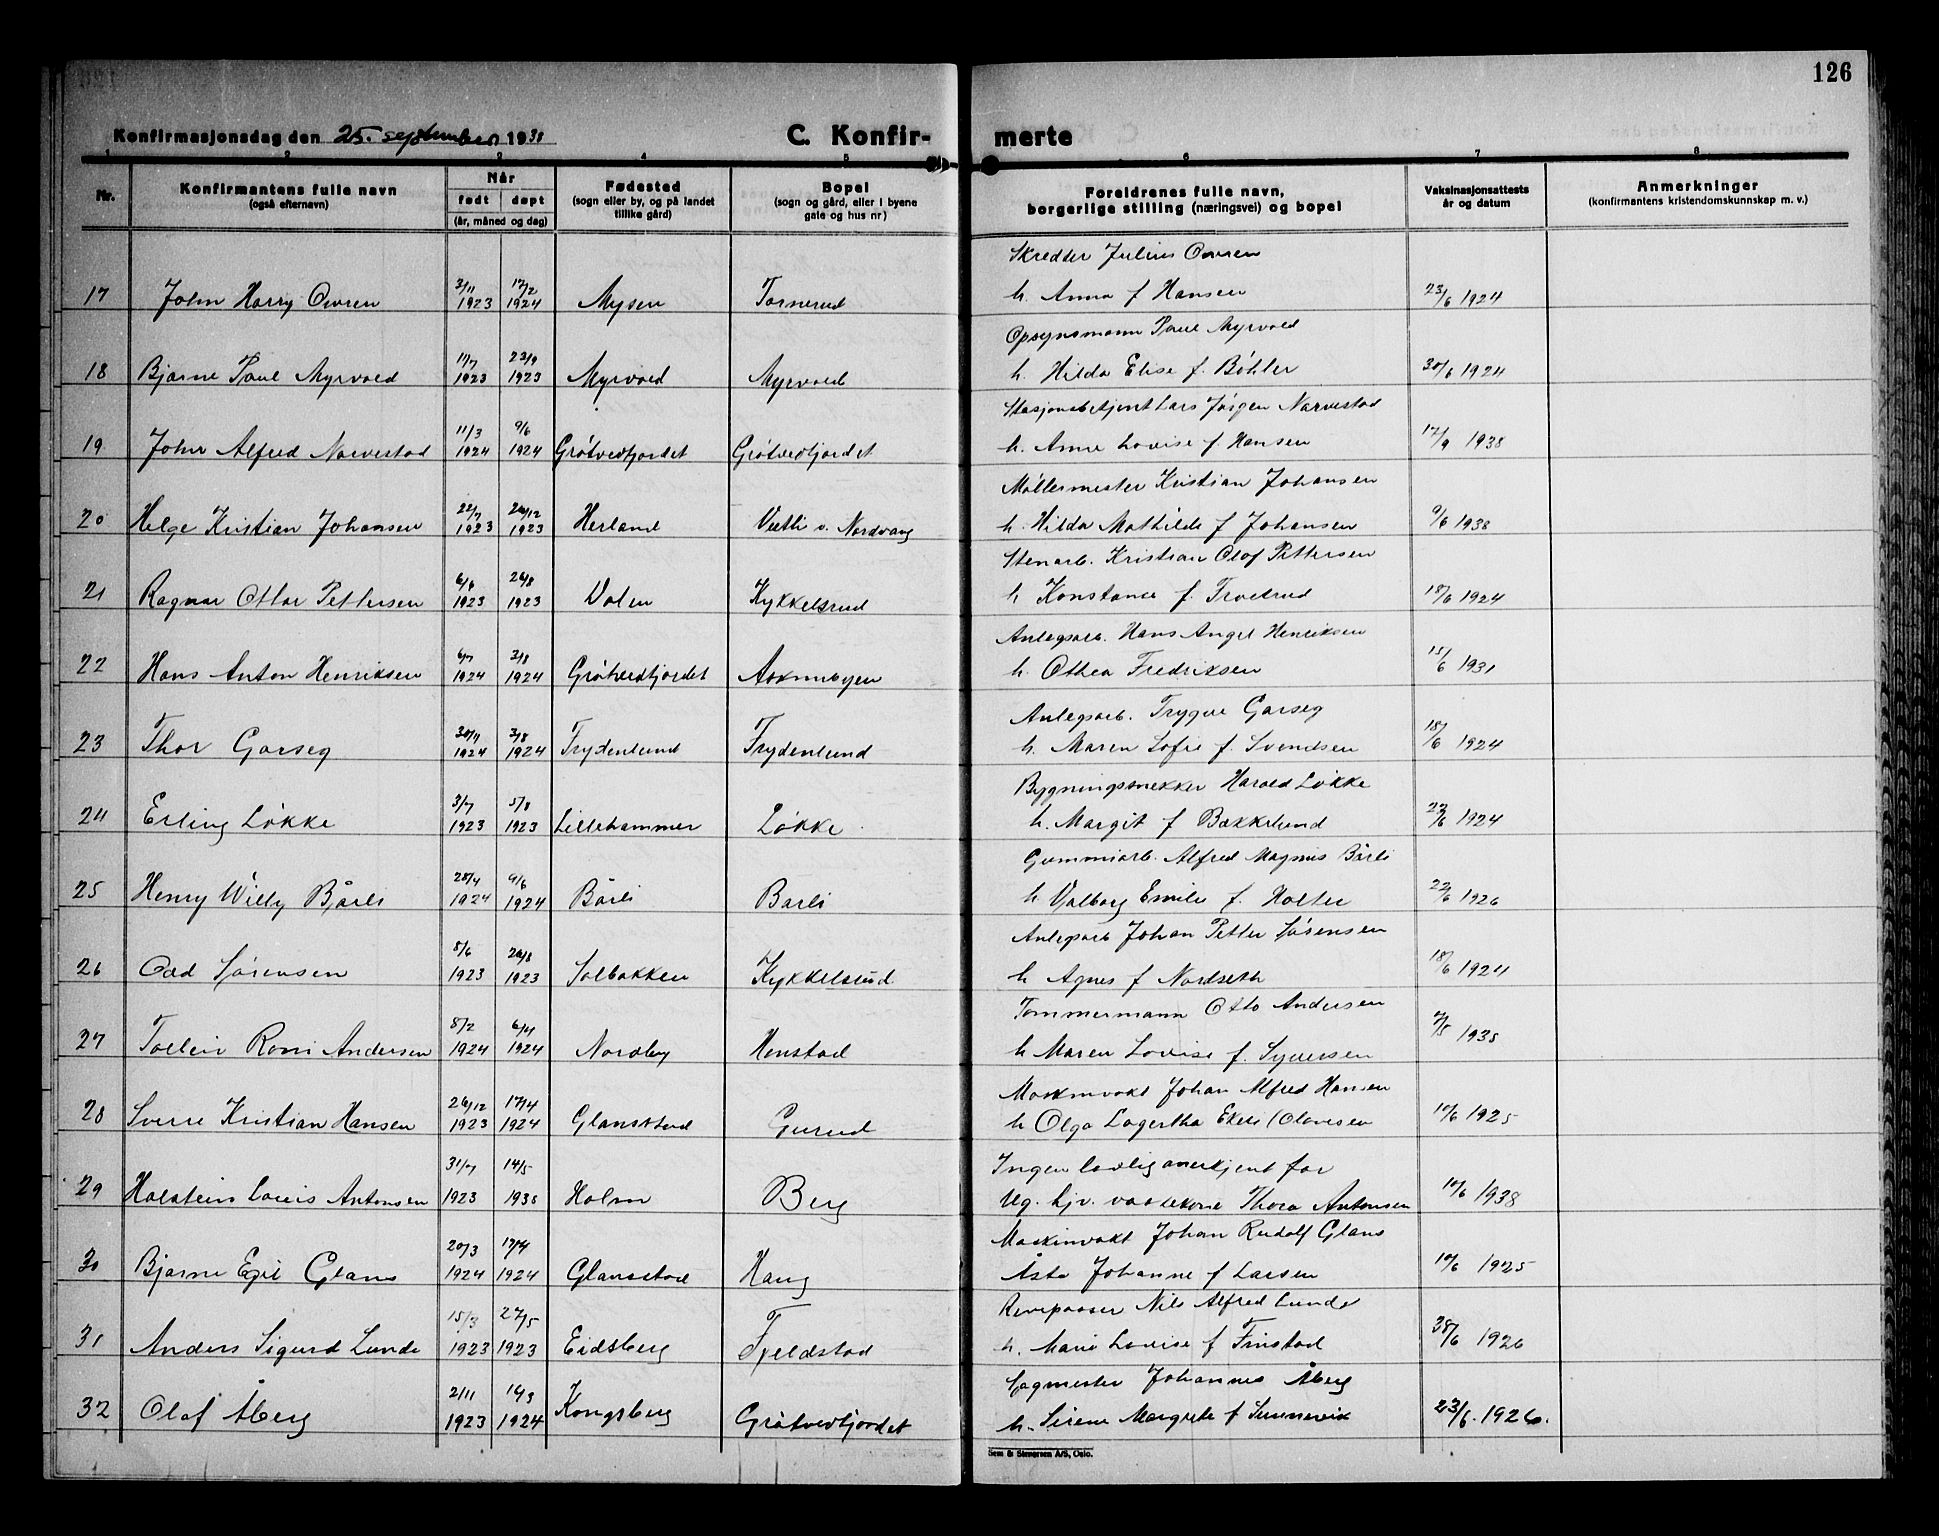 126
Konfirmasjonsdag den 25. september 1938
C. Konfir-
merte
1 2 3 4 5 6 7 8
Nr.
Konfirmantens fulle navn
(også efternavn)
Når
født døpt
(år, måned og dag)
Fødested
(sogn eller by, og på landet
tillike gård)
Bopel
(sogn og gård, eller i byene
gate og hus nr)
Foreldrenes fulle navn,
borgerlige stilling (næringsvei) og bopel
Vaksinasjonsattests
år og datum
Anmerkninger
(konfirmantens kristendomskunnskap m. v.)
Skredder Julius Owren
17 John Harry Owren 3/11 1923 17/2 1924 Mysen Tornerud h. Anna f Hansen 23/6 1924
Opsynsmann Paul Myrvold
18 Bjarne Paul Myrvold 11/7 1923 23/9 1923 Myrvold Myrvold h. Hilda Elise f. Böhler 30/6 1924
Stasjonsbetjent Lars Jörgen Narvestad
19 John Alfred Narvestad 11/3 1924 9/6 1924 Grötvedtjordet Grötvedtjordet h. Anna Lovise f Hansen 17/9 1938
Möllermester Kristian Johansen
20 Helge Kristian Johansen 22/7 1923 26/12 1923 Herland v. Nordvang h. Hilda Mathilde f Johansen 9/6 1938
Stenarb. Kristian Olof Pettersen
21 Ragnar Ottar Pettersen 6/6 1923 26/8 1923 Volen Kykkelsrud h Konstance f. 18/6 1924
Anlegsarb. Hans Angel Henriksen
22 Hans Anton Henriksen 6/7 1924 3/8 1924 Grötvedtjordet h. Othea Fredriksen 15/6 1931
Anlegsarb. Trygve Garseg
23 Thor Garseg 1924 3/8 1924 Frydenlund Frydenlund h. Maren Sofie f. Svendsen 18/6 1924
Bygningssnekker Harald Lökke
24 Erling Lökke 3/7 1923 5/8 1923 Lillehammer Lökke h. Margit f Bakkelund 23/6 1924
Gummiarb. Alfred Magnus Bårli
25 Henry Willy Bjårli 28/4 1924 9/6 1924 Bårli Barli h Valborg Emilie f. Holter 22/6 1926
Anlegsarb Johan Petter Sörensen
26 Odd Sörensen 8/6 1923 26/8 1923 Solbakken Kykkelsrud h Agnes f Nordseth 18/6 1924
Tömmermann Otto Andersen
27 Roni Andersen 8/2 1924 6/4 1924 Nordby Henstad h Maren Lovise f. Syversen 1938
Maskinvakt Johan Alfred Hansen
28 Sverre Kristian Hansen 26/12 1923 17/4 1924 Glansstad Gurud h Olga Lagertha Ekeli (Olavesen 10/6 1925
Ingen lovlig anerkjent far
29 Holstein Louis Antonsen 31/7 1923 14/5 1938 Holm Berg Ug. hj.v. vaskekone Thora Antonsen 10/6 1938
Maskinvakt Johan Rudolf Glans
30 Bjarne Egil Glans 20/3 1924 17/4 1924 Glansstad Haug Åsta Johanne f Larsen 10/6 1925
Revepasser Nils Alfred Lunde
31 Anders Sigurd Lunde 15/3 1923 27/5 1923 Eidsberg Fjeldstad h. Marie Lovise f Finstad 1926
Sagmester Johannes Åberg
32 Olaf Åberg 2/11 1923 16/3 1924 Kongsberg Grötvedtjordet h. Sirene Margrete f 23/6. 1926.
Sem & Stenersen A/S, Oslo.